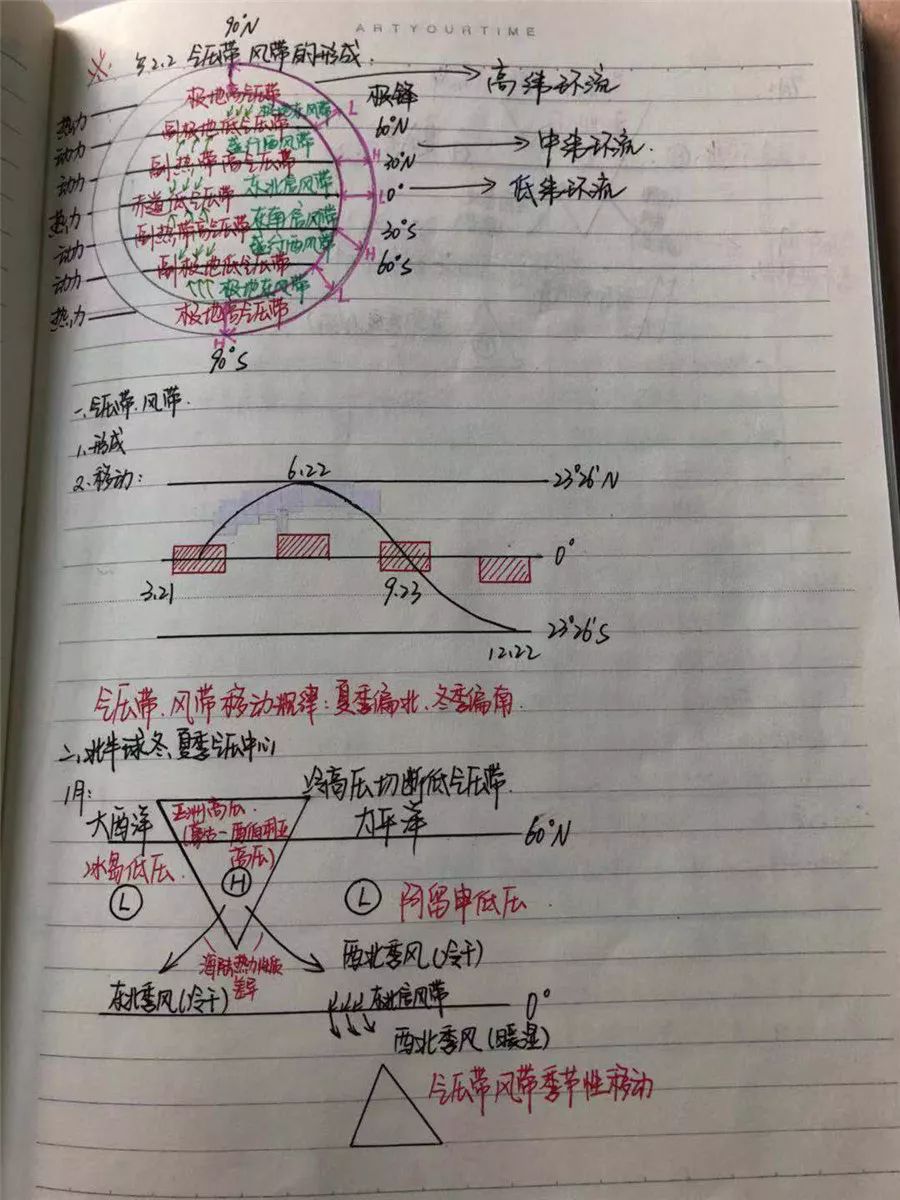 ARTYOURTIME
90°N
※. §2.2 气压带、风带的形成.
高纬环流
极地高气压带
极锋
热力
极地东风带
L
副极地低气压带
60°N
动力
盛行西风带
中纬环流.
副热带高气压带
H
30°N
动力
东北信风带
低纬环流
赤道低气压带
0°
热力
东南信风带
副热带高气压带
30°S
动力
盛行西风带
H
副极地低气压带
60°S
动力
极地东风带
L
热力
极地高气压带
H
90°S
一、气压带、风带.
1、形成
2、移动:
6.22
23°26′N
0°
3.21
9.23
23°26′S
12.22
气压带、风带移动规律:夏季偏北、冬季偏南.
二、北半球冬、夏季气压中心
1月:
冷高压切断低气压带.
大西洋
亚洲高压.
太平洋
(蒙古-西伯利亚
60°N
冰岛低压.
高压)
H
L
L
阿留申低压.
西北季风(冷干)
海陆热力性质
差异
东北季风(冷干)
东北信风带
0°
西北季风(暖湿)
气压带风带季节性移动